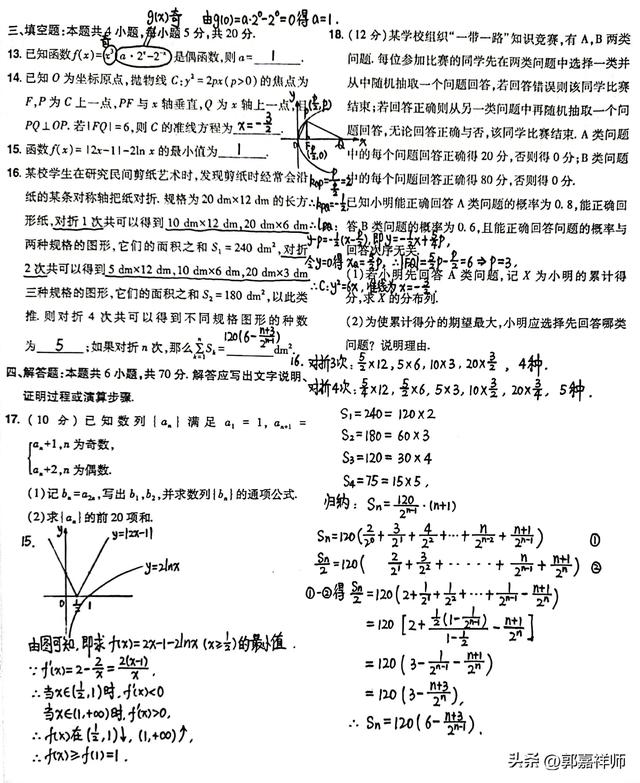 g(x)奇 由g(0)=a·2⁰-2⁰=0得a=1.
三、填空题:本题共4小题,每小题5分,共20分.
奇
13. 已知函数f(x)=x³(a·2ˣ-2⁻ˣ)是偶函数,则a= 1 .
14. 已知O为坐标原点,抛物线C:y²=2px(p>0)的焦点为
F,P为C上一点,PF与x轴垂直,Q为x轴上一点,且
PQ⊥OP. 若|FQ|=6,则C的准线方程为 x=-3/2 .
15. 函数f(x)=|2x-1|-2ln x的最小值为 1 .
16. 某校学生在研究民间剪纸艺术时,发现剪纸时经常会沿
纸的某条对称轴把纸对折. 规格为20 dm×12 dm的长方
形纸,对折1次共可以得到10 dm×12 dm,20 dm×6 dm
两种规格的图形,它们的面积之和S₁=240 dm²,对折
2次共可以得到5 dm×12 dm,10 dm×6 dm,20 dm×3 dm
三种规格的图形,它们的面积之和S₂=180 dm²,以此类
推. 则对折4次共可以得到不同规格图形的种数
为 5 ;如果对折n次,那么∑ₖ₌₁ⁿSₖ= 120(6-(n+3)/2ⁿ⁻¹) dm².
四、解答题:本题共6小题,共70分. 解答应写出文字说明、
证明过程或演算步骤.
17. (10分)已知数列{aₙ}满足a₁=1,aₙ₊₁=
{aₙ+1,n为奇数,
aₙ+2,n为偶数.
(1)记bₙ=a₂ₙ,写出b₁,b₂,并求数列{bₙ}的通项公式.
(2)求{aₙ}的前20项和.
15.
y
y=|2x-1|
y=2lnx
0 1/2 1 x
由图可知,即求f(x)=2x-1-2lnx (x≥1/2)的最小值.
∵f'(x)=2-2/x=2(x-1)/x,
∴当x∈(1/2,1)时,f'(x)<0
当x∈(1,+∞)时,f'(x)>0,
∴f(x)在(1/2,1)↓,(1,+∞)↑,
∴f(x)≥f(1)=1.
18. (12分)某学校组织“一带一路”知识竞赛,有A,B两类
问题. 每位参加比赛的同学先在两类问题中选择一类并
从中随机抽取一个问题回答,若回答错误则该同学比赛
结束;若回答正确则从另一类问题中再随机抽取一个问
题回答,无论回答正确与否,该同学比赛结束. A类问题
中的每个问题回答正确得20分,否则得0分;B类问题
中的每个问题回答正确得80分,否则得0分.
已知小明能正确回答A类问题的概率为0.8,能正确回
答B类问题的概率为0.6,且能正确回答问题的概率与
回答次序无关.
(1)若小明先回答A类问题,记X为小明的累计得
分,求X的分布列.
(2)为使累计得分的期望最大,小明应选择先回答哪类
问题?说明理由.
y
(p/2,p)
P
0 (p/2,0) Q x
kOP=p/(p/2)=2
∴kPQ=-1/2
∴lPQ:
y-p=-1/2(x-p/2),即y=-1/2x+5/4p,
令y=0得xQ=5/2p,∴|FQ|=5/2p-p/2=6⇒p=3,
∴C:y²=6x,准线为x=-3/2
16. 对折3次:5/2×12,5×6,10×3,20×3/2,4种.
对折4次:5/4×12,5/2×6,5×3,10×3/2,20×3/4,5种.
S₁=240=120×2
S₂=180=60×3
S₃=120=30×4
S₄=75=15×5,
归纳:Sn=120/2ⁿ⁻¹·(n+1)
Sn=120(2/2⁰+3/2¹+4/2²+…+n/2ⁿ⁻²+(n+1)/2ⁿ⁻¹) ①
Sn/2=120(2/2¹+3/2²+……+n/2ⁿ⁻¹+(n+1)/2ⁿ) ②
①-②得 Sn/2=120(2+1/2¹+1/2²+…+1/2ⁿ⁻¹-(n+1)/2ⁿ)
=120[2+1/2(1-1/2ⁿ⁻¹)/(1-1/2)-(n+1)/2ⁿ]
=120(3-1/2ⁿ⁻¹-(n+1)/2ⁿ)
=120(3-(n+3)/2ⁿ),
∴Sn=120(6-(n+3)/2ⁿ⁻¹).
头条 @郭嘉祥师